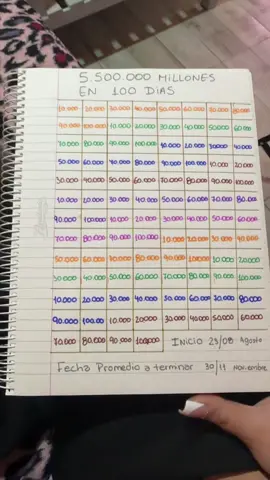 5.500.000 MILLONES
EN 100 DÍAS
10.000 20.000 30.000 40.000 50.000 60.000 70.000 80.000
90.000 100.000 10.000 20.000 30.000 40.000 50.000 60.000
70.000 80.000 90.000 100.000 10.000 20.000 30.000 40.000
50.000 60.000 70.000 80.000 90.000 100.000 10.000 20.000
30.000 40.000 50.000 60.000 70.000 80.000 90.000 100.000
10.000 20.000 30.000 40.000 50.000 60.000 70.000 80.000
90.000 100.000 10.000 20.000 30.000 40.000 50.000 60.000
70.000 80.000 90.000 100.000 10.000 20.000 30.000 40.000
50.000 60.000 70.000 80.000 90.000 100.000 10.000 20.000
30.000 40.000 50.000 60.000 70.000 80.000 90.000 100.000
10.000 20.000 30.000 40.000 50.000 60.000 70.000 80.000
90.000 100.00 10.000 20.000 30.000 40.000 50.000 60.000
70.000 80.000 90.000 100.000 INICIO 23/08 Agosto
Fecha Promedio a terminar 30/11 Noviembre